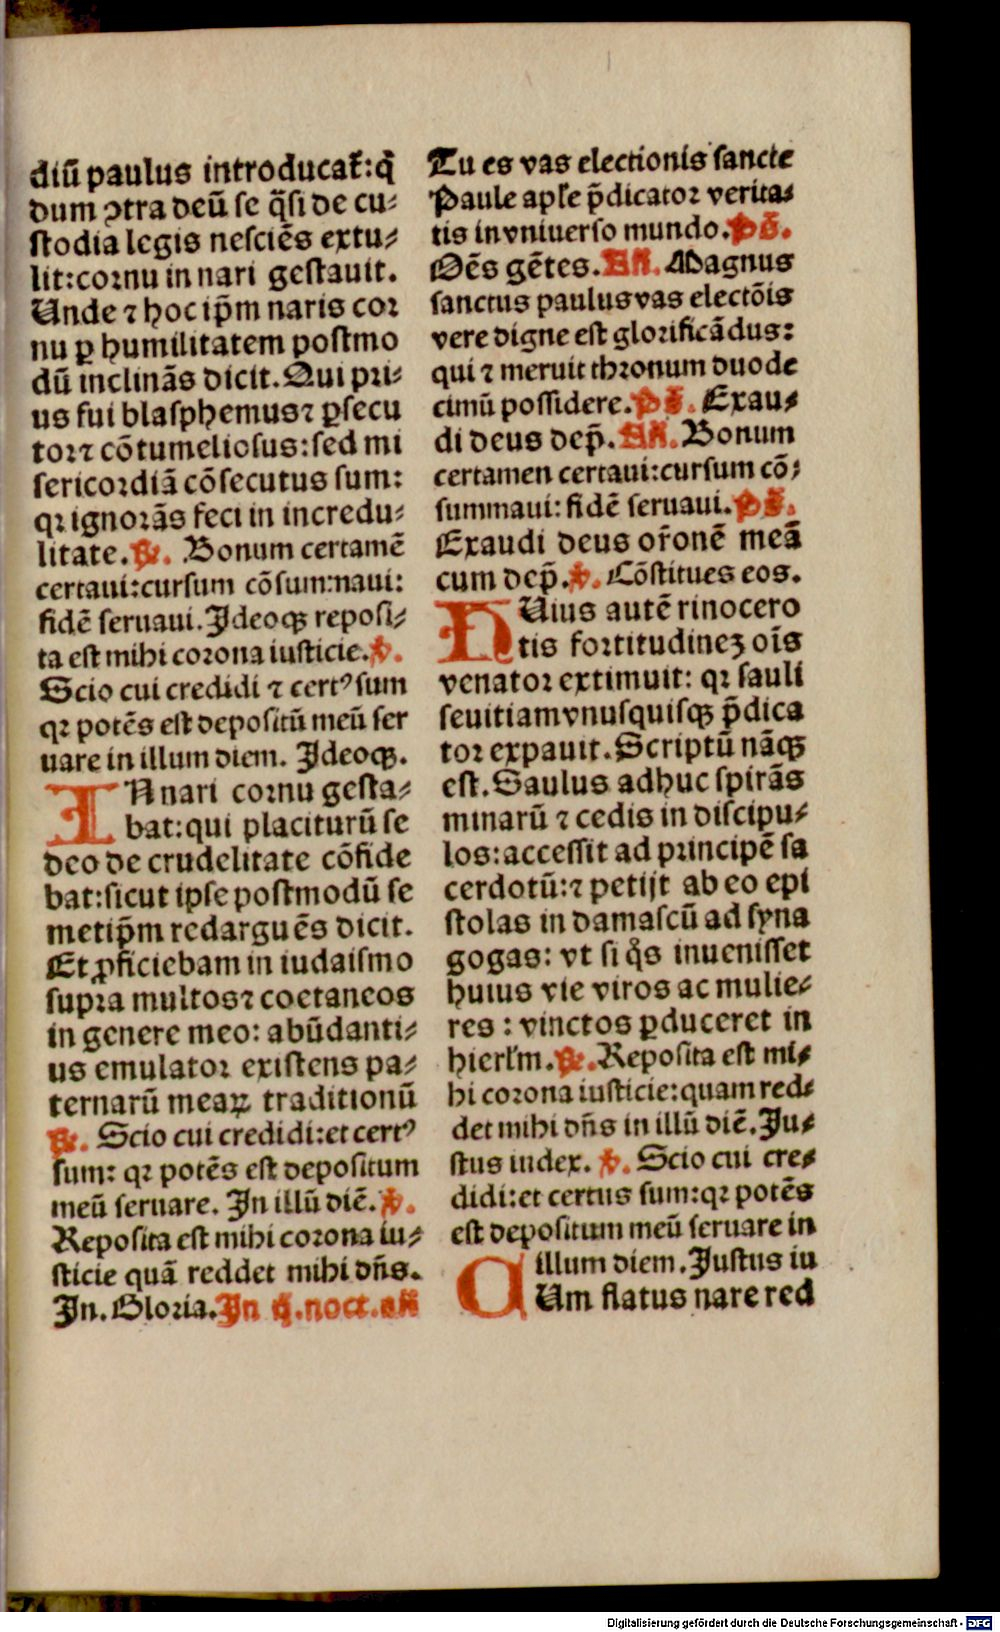 diū paulus introducat᷑:q̄
dum ↄtra deū se q̄si de cu⸗
ſtodia legis neſciēs extu⸗
lit:coꝛnu in nari geſtauit.
Unde ⁊ hoc ip̄m naris coꝛ
nu ꝑ humilitatem poſtmo
dū inclinās dicit. Qui pꝛi⸗
us fui blaſphemus⁊ ꝑſecu
toꝛ⁊ cōtumelioſus:ſed mi
ſericoꝛdiā cōſecutus ſum:
qꝛ ignoꝛās feci in incredu⸗
litate. ℟. Bonum certamē
certaui:curſum cōſummaui:
fidē ſeruaui. Ideoqꝫ repoſi⸗
ta eſt mihi coꝛona iuſticie. ℣.
Scio cui credidi ⁊ certꝰ ſum
qꝛ potēs eſt depoſitū meū ſer
uare in illum diem. Ideoqꝫ.
IN nari coꝛnu geſta⸗
bat:qui placiturū ſe
deo de crudelitate cōfide
bat:ſicut ipſe poſtmodū ſe
metip̄m redarguēs dicit.
Et ꝓficiebam in iudaiſmo
ſupꝛa multos⁊ coetaneos
in genere meo: abūdanti⸗
us emulatoꝛ exiſtens pa⸗
ternarū meaꝝ traditionū
℟. Scio cui credidi:et certꝰ
ſum: qꝛ potēs eſt depoſitum
meū ſeruare. In illū diē. ℣.
Repoſita eſt mihi coꝛona iu⸗
ſticie quā reddet mihi dn̄s.
In. Gloꝛia. In ij. noct. añ
Tu es vas electionis ſancte
Paule apl̄e p̄dicatoꝛ verita⸗
tis in vniuerſo mundo. Pš.
Om̄s gētes. Añ. Magnus
ſanctus paulus vas electōis
vere digne eſt gloꝛificādus:
qui ⁊ meruit thꝛonum duode
cimū poſſidere. Pš. Exau⸗
di deus dep̄. Añ. Bonum
certamen certaui:curſum cō⸗
ſummaui: fidē ſeruaui. Pš.
Exaudi deus or̄onē meā
cum dep̄. ℣. Cōſtitues eos.
HUius autē rinocero
tis foꝛtitudineꝫ oīs
venatoꝛ extimuit: qꝛ ſauli
ſeuitiam vnuſquiſqꝫ p̄dica
toꝛ expauit. Scriptū nāqꝫ
eſt. Saulus adhuc ſpirās
minarū ⁊ cedis in diſcipu⸗
los:acceſſit ad pꝛincipē ſa
cerdotū:⁊ petijt ab eo epi
ſtolas in damaſcū ad ſyna
gogas: vt ſi q̄s inueniſſet
huius vie viros ac mulie⸗
res : vinctos ꝑduceret in
hierl̄m. ℟. Repoſita eſt mi⸗
hi coꝛona iuſticie:quam red⸗
det mihi dn̄s in illū diē. Ju⸗
ſtus iudex. ℣. Scio cui cre⸗
didi:et certus ſum:qꝛ potēs
eſt depoſitum meū ſeruare in
illum diem. Juſtus iu
CUm flatus nare red
Digitalisierung gefördert durch die Deutsche Forschungsgemeinschaft - DFG